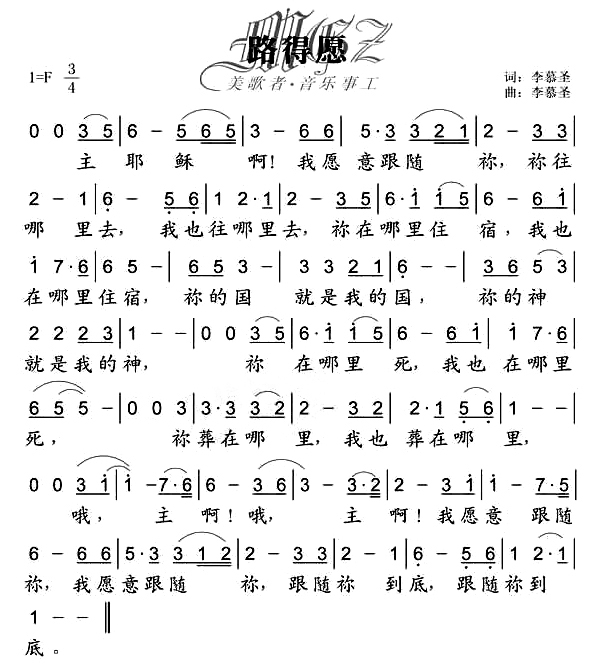 路得愿
美歌者·音乐事工
1=F 3/4
词：李慕圣
曲：李慕圣
0 0 3 5 | 6 - 5 6 5 | 3 - 6 6 | 5· 3 3 2 1 | 2 - 3 3 |
主 耶 稣 啊！我愿意跟随 祢，祢往
2 - 1 | 6 - 5 6 | 1 2· 1 | 2 - 3 5 | 6· i i 6 | 6 - 6 i |
哪 里去，我也往哪里去，祢在哪里住 宿，我也
i 7· 6 | 6 5 - | 3 5 - | 3 3 2 1 | 6 - - | 3 6 5 3 |
在哪里住宿，祢的国 就是我的国，祢的神
2 2 2 3 | 1 - - | 0 0 3 5 | 6· i i 6 | 5 - 6 i | i 7· 6 |
就是我的神， 祢 在哪里 死，我也在哪里
6 5 5 - | 0 0 3 | 3· 3 3 2 | 2 - 3 2 | 1· 2 5 6 | 1 - - |
死， 祢葬在哪 里，我也 葬在哪 里，
0 0 3 i | i - 7· 6 | 6 - 3 6 | 3 - 3· 2 | 2 - 3 i | i - 7· 5 |
哦， 主 啊！哦， 主 啊！我愿意 跟随
6 - 6 6 | 5· 3 3 1 2 | 2 - 2 3 | 2 1 - | 6 - 5 6 | 5 2 - |
祢，我愿意跟随 祢，跟随祢 到底，跟随祢到
1 - - ‖
底。